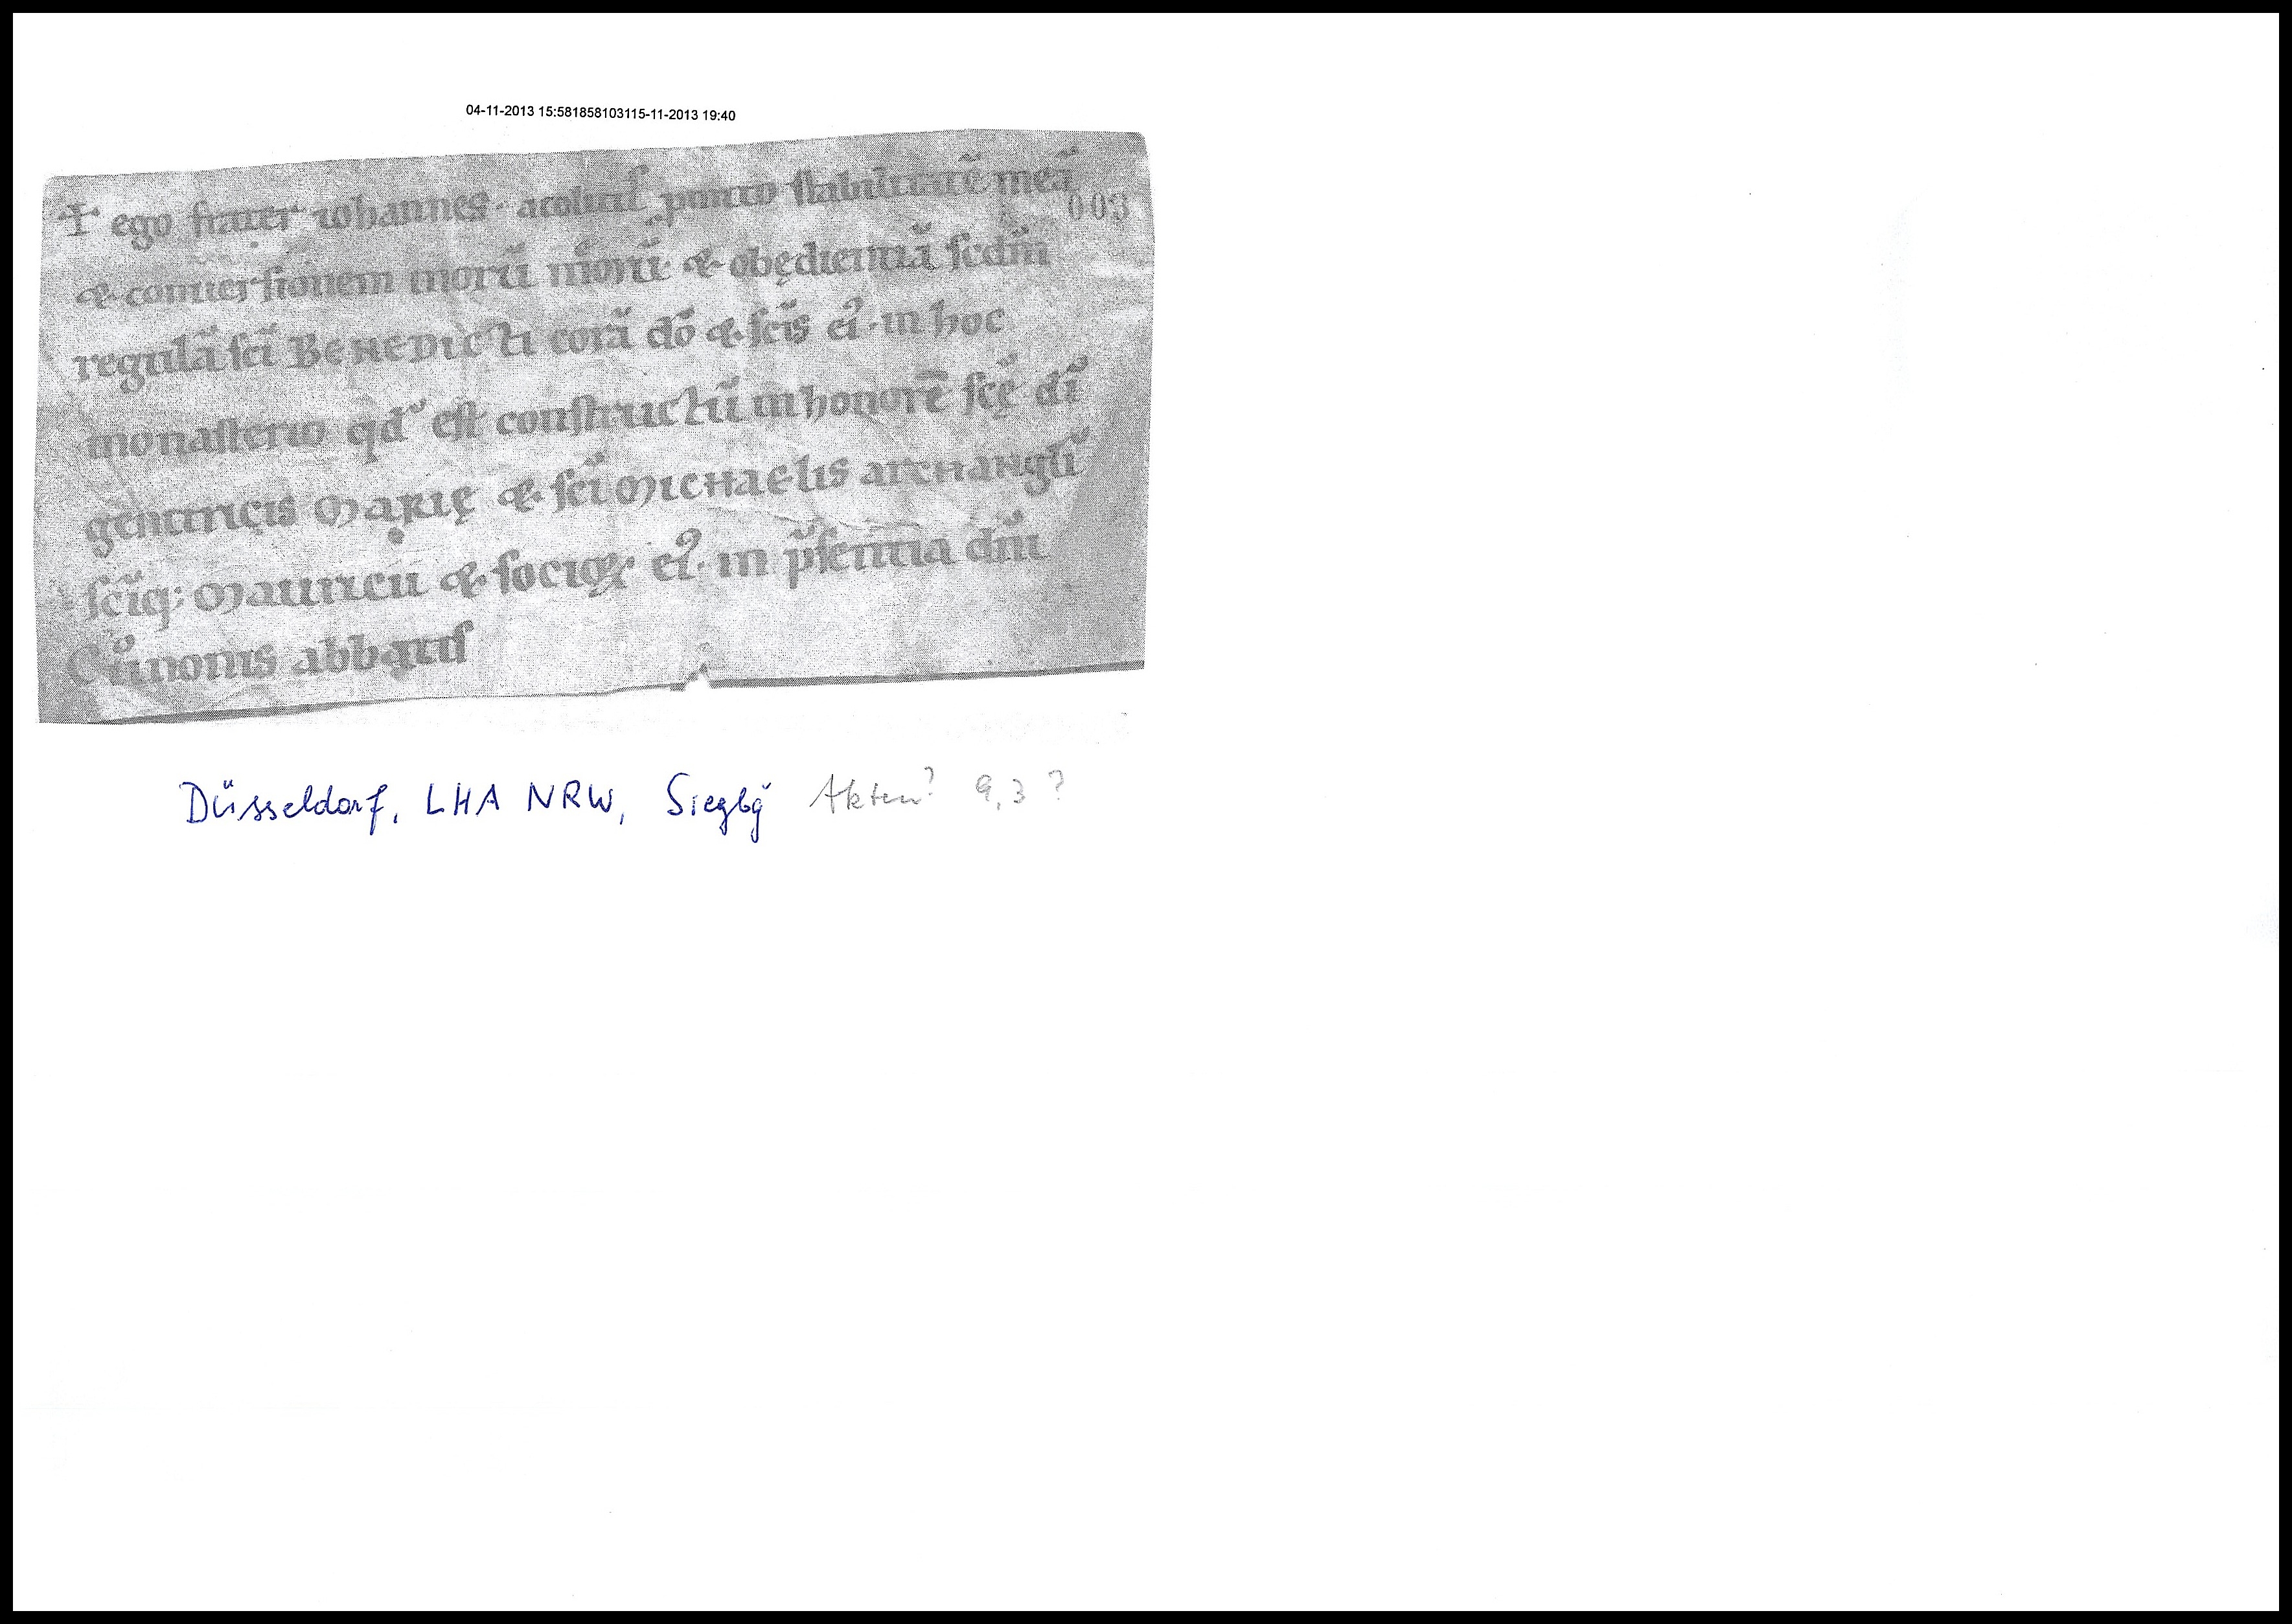 04-11-2013 15:581858103115-11-2013 19:40
☩ ego frater iohannes · acolitꝰ ꝓmitto stabilitatē meā
003
& conuersionem morū mͦorū · & obędientiā scdm̄
regulā sc̄i BENEDICTI corā dō & sc̄is eiꝰ · in hoc
monasterio qd̄ est constructū in honorē sc̄ę dī
genitricis MARIĘ & sc̄i MICHAELIS archangl̄i
sc̄iq; Mauricii & socioꝝ eiꝰ · in p̄sentia dn̄i
Cůnonis abbatis
Düsseldorf, LHA NRW, Siegbg Akten? 9,3 ?